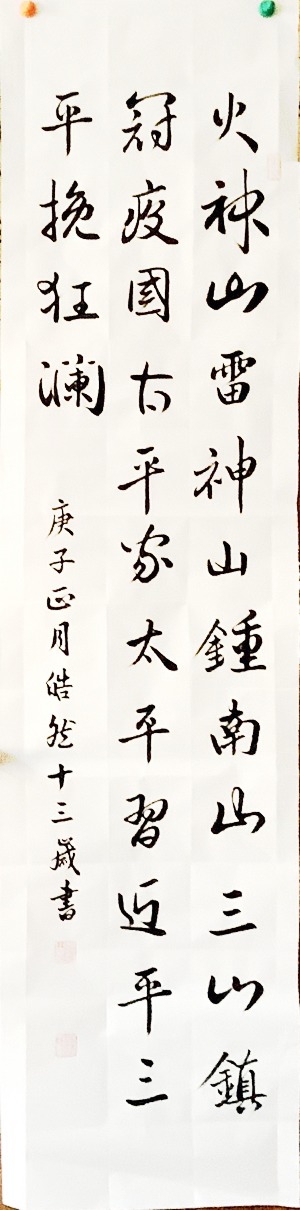 火神山雷神山鍾南山三山鎮
冠疫國太平家太平習近平三
平挽狂澜
庚子正月皓然十三歲書